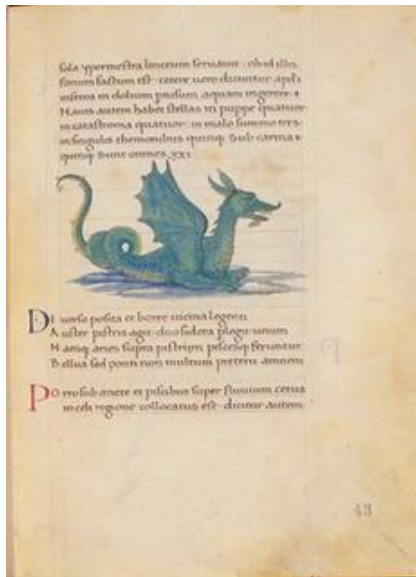 sola ypermestra linceum servavit · ob id illis
sonum factum est · cetere vero dicuntur apd
inferos in dolium aquam ingerere ·
Navis autem habet stellas in puppe quatuor
in catastroma quatuor · in malo summo tres
in singulis themonibus quinq; sub carina
quinq; Sunt omnes XXI
DI verso posita et boree vicina legenti
A uster pistrin agit · duo sidera unum
N amq; aries supra pistrim pisciesq; feruntur
B ellua sed ponti non multum preterit amnem
PO rro sub ariete et piscibus super fluvium cetus
in celi regione collocatus est · dicitur autem
43